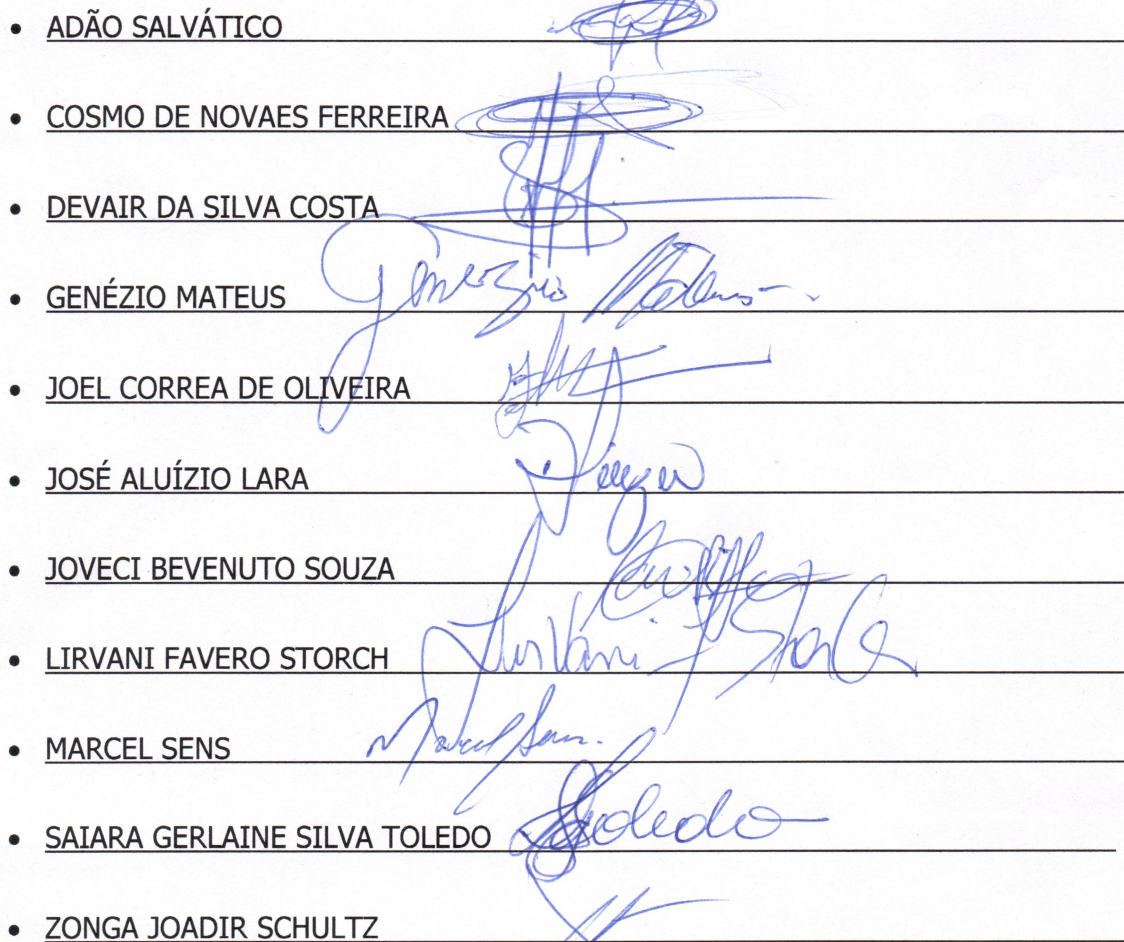 • ADÃO SALVÁTICO
• COSMO DE NOVAES FERREIRA
• DEVAIR DA SILVA COSTA
• GENÉZIO MATEUS Genezio Mateus
• JOEL CORREA DE OLIVEIRA
• JOSÉ ALUÍZIO LARA
• JOVECI BEVENUTO SOUZA
• LIRVANI FAVERO STORCH Lirvani F Storch
• MARCEL SENS Marcel Sens
• SAIARA GERLAINE SILVA TOLEDO Toledo
• ZONGA JOADIR SCHULTZ